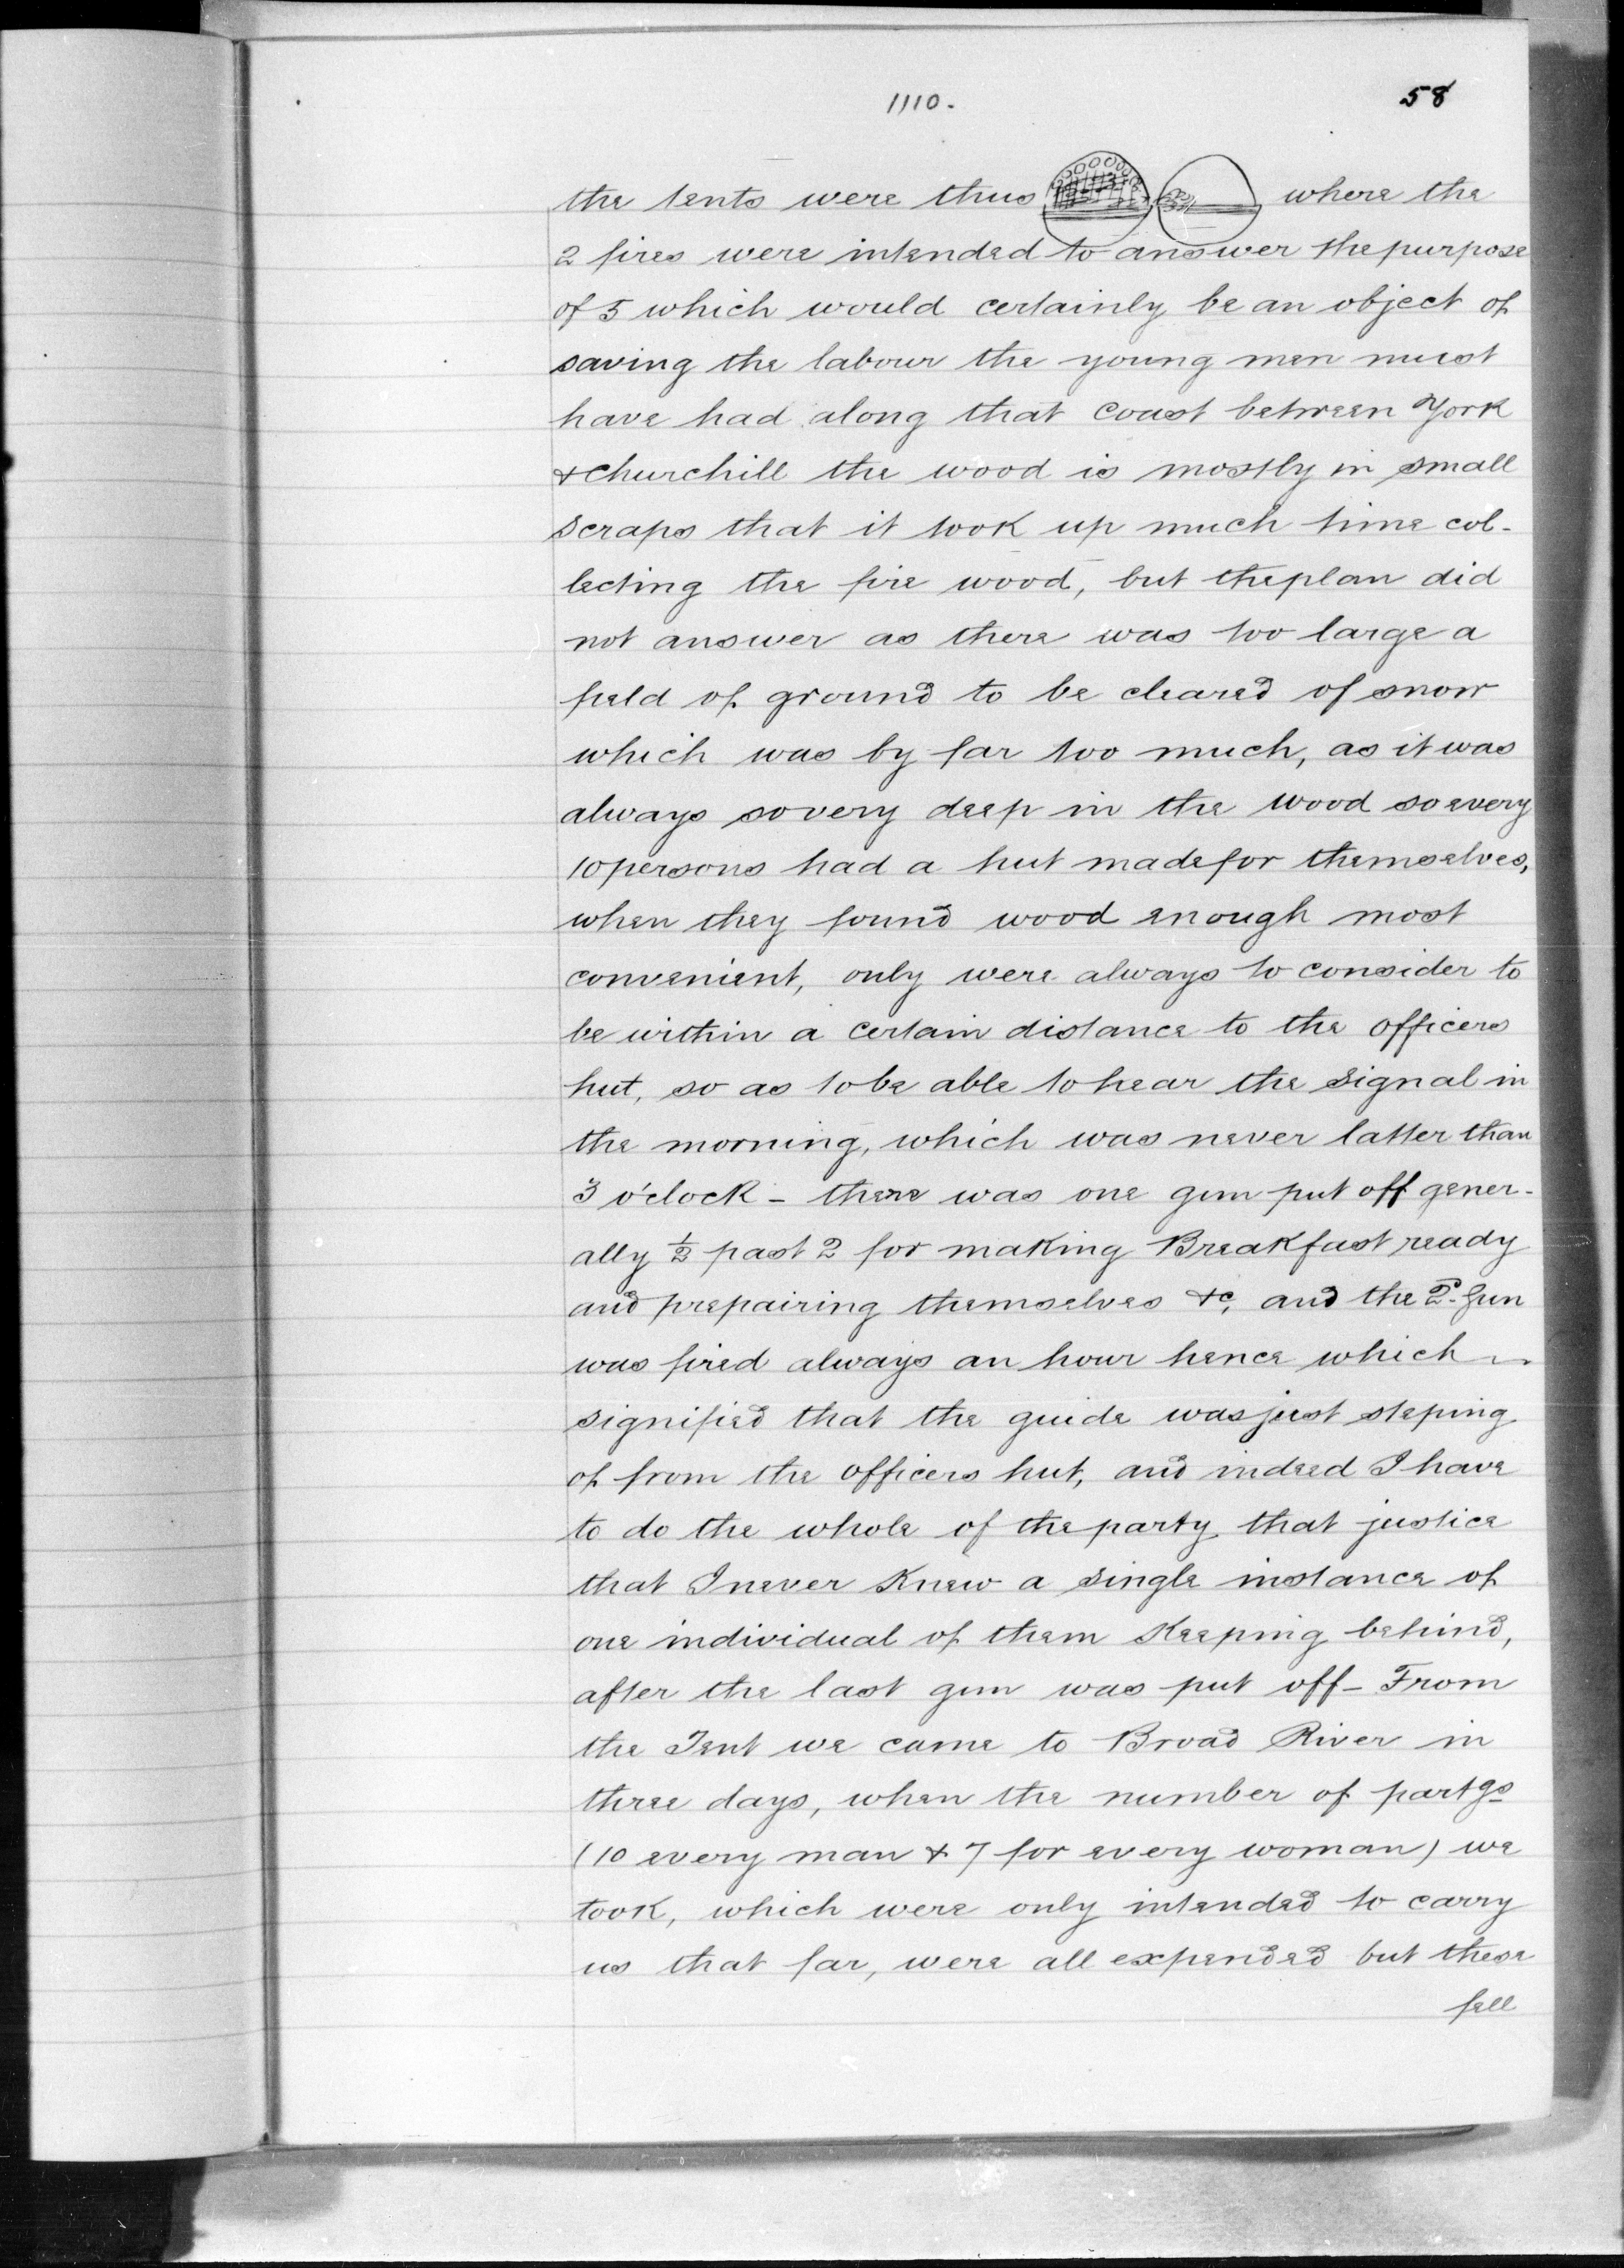 1110.
58
the tents were thus where the
2 fires were intended to answer the purpose
of 5 which would certainly be an object of
saving the labour the young men must
have had along that coast between York
& Churchill the wood is mostly in small
scraps that it took up much time col-
lecting the fire wood, but the plan did
not answer as there was too large a
field of ground to be cleared of snow
which was by far too much, as it was
always so very deep in the wood so every
10 persons had a hut made for themselves,
when they found wood enough most
convenient, only were always to consider to
be within a certain distance to the officers
hut, so as to be able to hear the signal in
the morning, which was never latter than
3 o'clock - there was one gun put off gener-
ally ½ past 2 for making Breakfast ready
and prepairing themselves &c, and the 2d. Gun
was fired always an hour hence which
signified that the guide was just steping
of from the officers hut, and indeed I have
to do the whole of the party that justice
that I never Knew a single instance of
one individual of them Keeping behind,
after the last gun was put off - From
the Tent we came to Broad River in
three days, when the number of partgs
(10 every man & 7 for every woman) we
took, which were only intended to carry
us that far, were all expended but these
fell